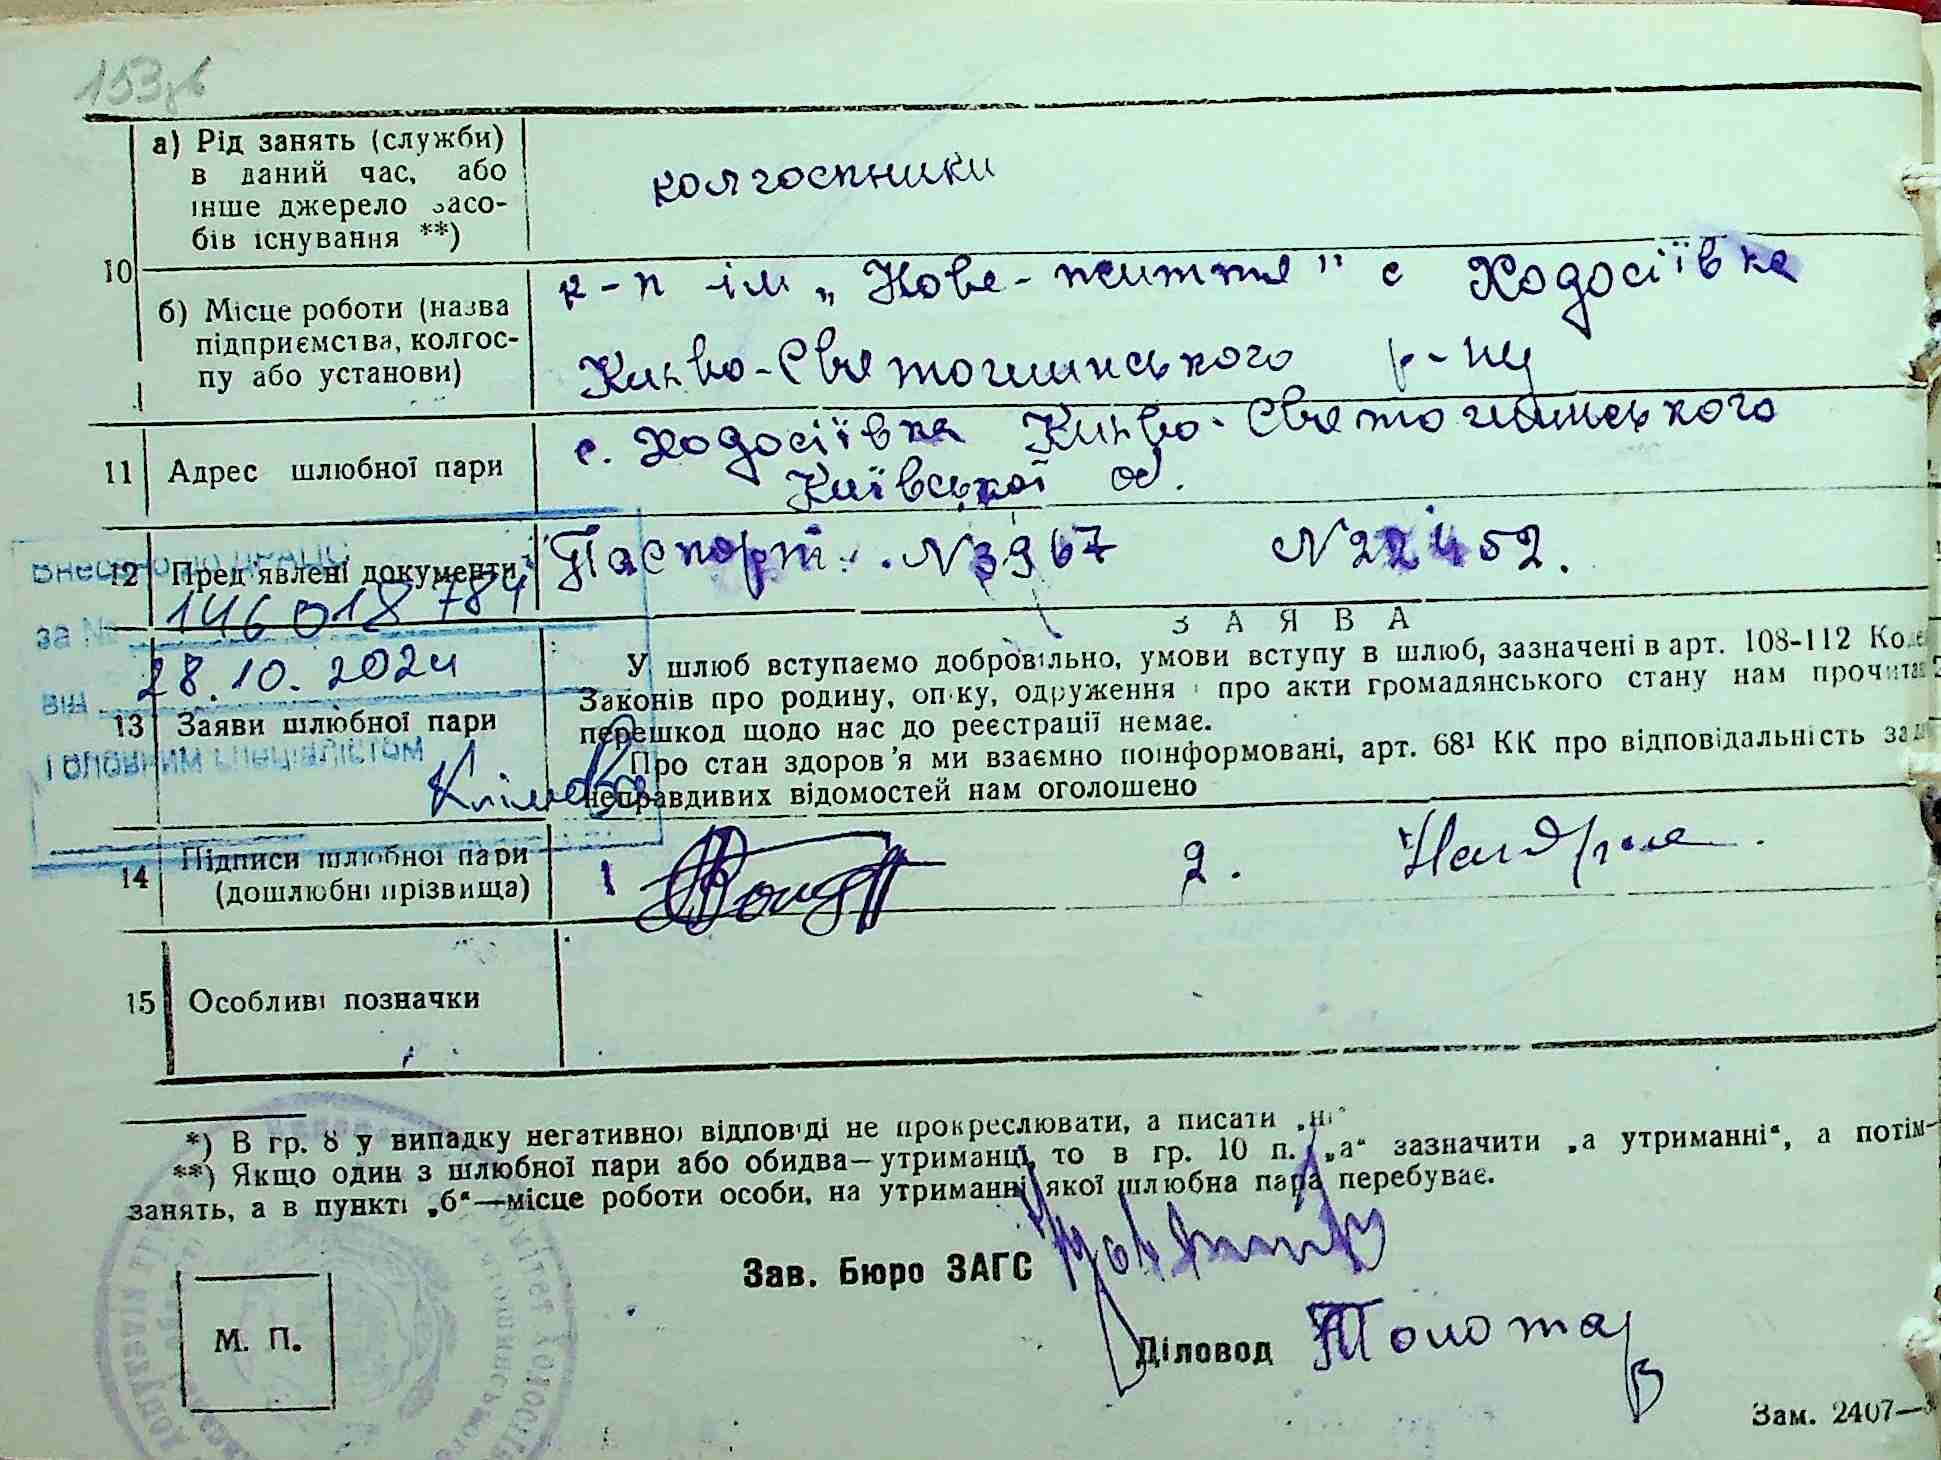 153зв
10
а) Рід занять (служби)
в даний час, або
інше джерело засо-
бів існування **)
колгоспники
б) Місце роботи (назва
підприємства, колгос-
пу або установи)
к-п ім „Нове-життя" с Ходосіївка
Києво-Святошинського р-ну
11 Адрес шлюбної пари
с. Ходосіївка Києво-Святошинського
Київської об.
12 Пред'явлені документи
Паспорт. N3967 N22452.
за № 146 018 784
від 28.10.2024
Головним спеціалістом
13 Заяви шлюбної пари
ЗАЯВА
У шлюб вступаємо добровільно, умови вступу в шлюб, зазначені в арт. 108-112
Законів про родину, опіку, одруження і про акти громадянського стану нам
перешкод щодо нас до реєстрації немає.
Про стан здоров'я ми взаємно поінформовані, арт. 68¹ КК про відповідальність за
неправдивих відомостей нам оголошено
14 Підписи шлюбної пари
(дошлюбні прізвища)
1 2.
15 Особливі позначки
*) В гр. 8 у випадку негативної відповіді не прокреслювати, а писати „ні"
**) Якщо один з шлюбної пари або обидва—утриманці, то в гр. 10 п. „а" зазначити „а утриманні", а потім—
занять, а в пункті „б"—місце роботи особи, на утриманні якої шлюбна пара перебуває.
Зав. Бюро ЗАГС
Діловод
М. П.
Зам. 2407—